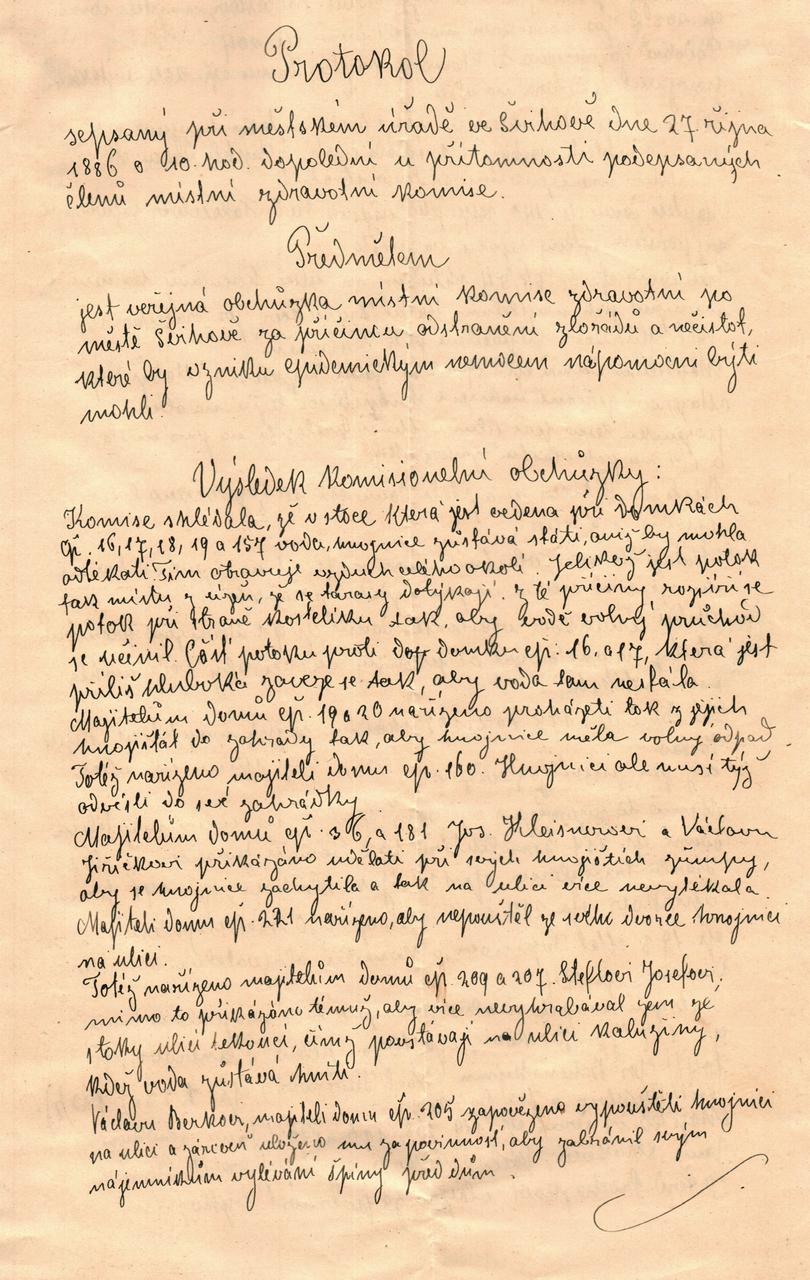 Protokol
sepsaný při městském úřadě ve Švihově dne 27 října
1886 o 10. hod. dopolední u přítomnosti podepsaných
členů místní zdravotní komise.
Předmětem
jest veřejná obchůzka místní komise zdravotní po
městě Švihově za příčinou odstranění zlořádů a nečistot,
které by vzniku epidemickým nemocem nápomocni býti
mohli.
Výsledek komisionelní obchůzky:
Komise shlédala, že v stoce která jest vedena při domkách
čp. 16, 17, 18, 19 a 157 voda, hnojnice zůstává státi, aniž by mohla
odtékati. Tím otravuje vzduch celého okolí. Jelikož jest potok
tak místy z úzen, že se tarasy dotýkají. Z té příčiny rozšíří se
potok při straně kostelíku tak, aby vodě volný průchod
se učinil. Část potoku proti domku čp. 16. a 17, která jest
příliš hluboká zaveze se tak, aby voda tam nestála.
Majitelům domů čp. 19 a 20 nařízeno proházeti tok z jejich
hnojišť do zahrady tak, aby hnojnice měla volný odpad.
Totéž nařízeno majiteli domu čp. 160. Hnojnici ale musí týž
odvésti do své zahrádky.
Majitelům domů čp. 36, a 181 Jos. Kleisnerovi a Václavu
Jiříčkovi přikázáno udělati při svých hnojištích žumpy,
aby se hnojnice zachytila a tak na ulici více nevytékala.
Majiteli domu čp. 221 nařízeno, aby nepouštěl ze svého dvorce hnojnici
na ulici.
Totéž nařízeno majitelům domů čp. 209 a 207. Steflovi Josefovi,
mimo to přikázáno témuž, aby více nevyhrabával zem ze
stoky ulicí tekoucí, čímž povstávají na ulici kalužiny,
kdež voda zůstává hníti.
Václavu Berkovi, majiteli domu čp. 205 zapovězeno vypouštěti hnojnici
na ulici a zároveň uloženo mu za povinnost, aby zabránil svým
nájemníkům vylévání špíny před dům.